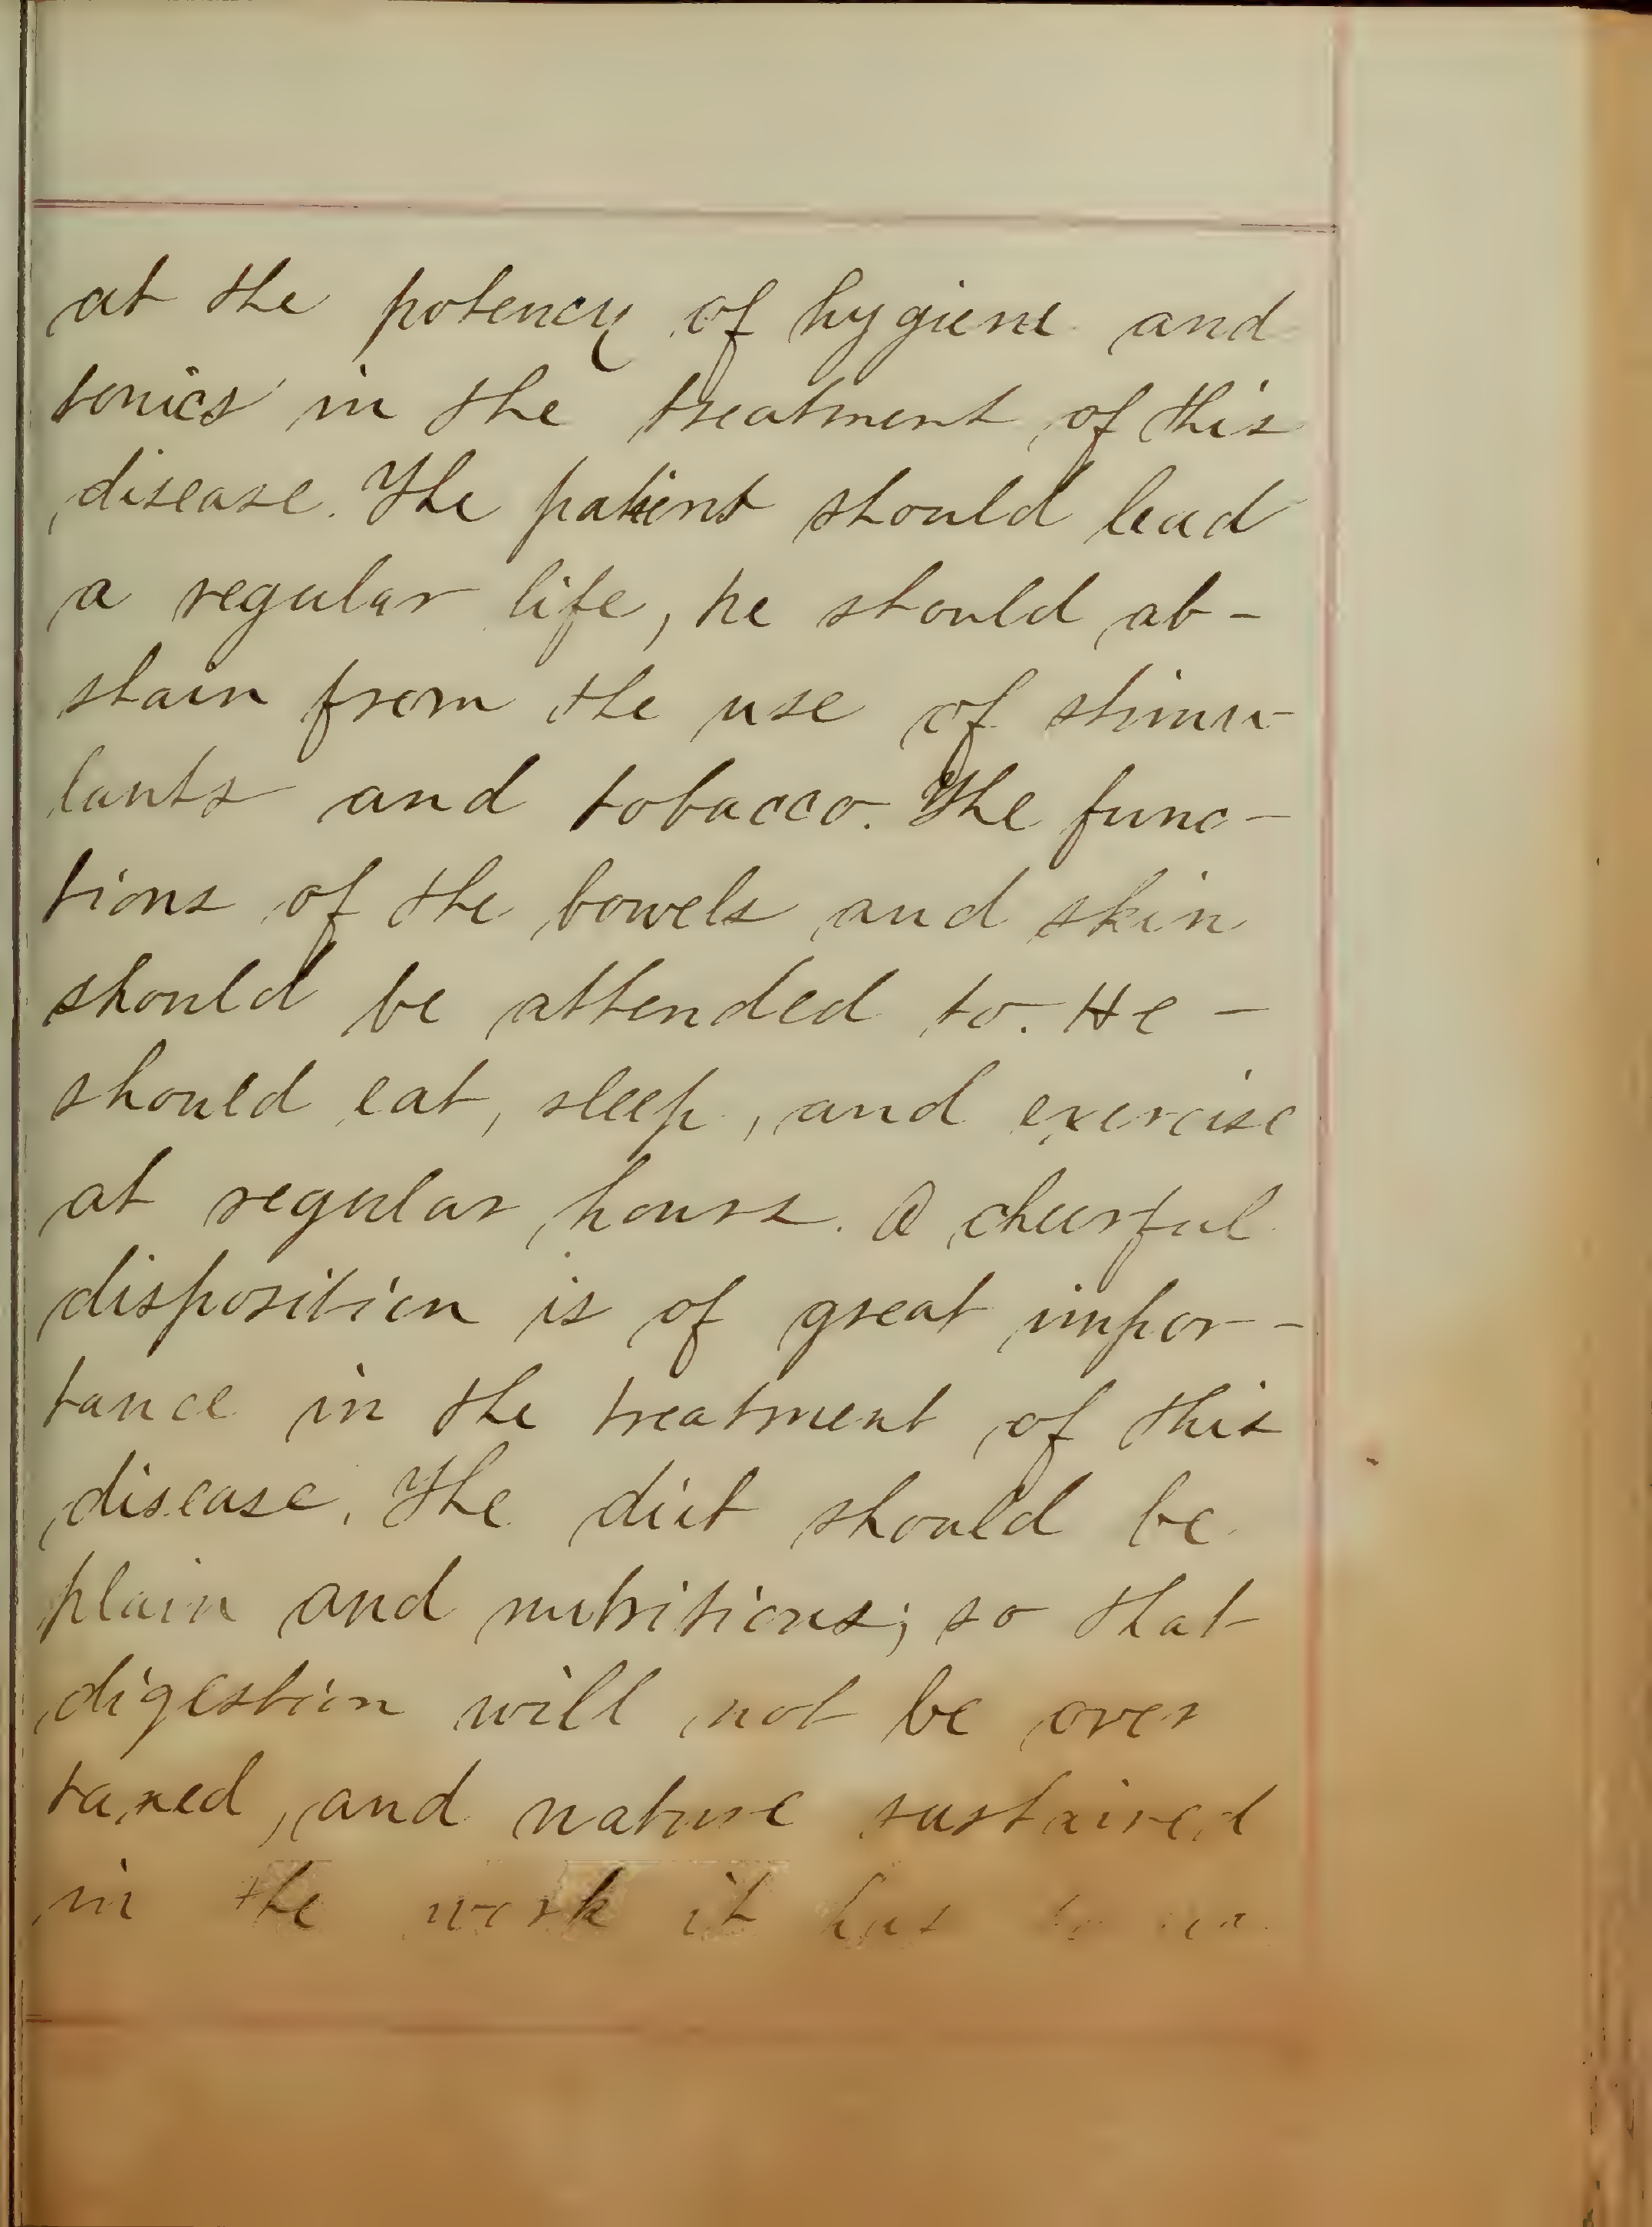 at the potency of hygiene and
tonics in the treatment of this
disease. The patient should lead
a regular life, he should ab-
stain from the use of stimu-
lants and tobacco. The func-
tions of the bowels and skin
should be attended to. He -
should eat, sleep, and exercise
at regular hours. A cheerful
disposition is of great impor-
tance in the treatment of this
disease. The diet should be
plain and nutritious; so that
digestion will not be over
taxed, and nature sustained
in the work it has